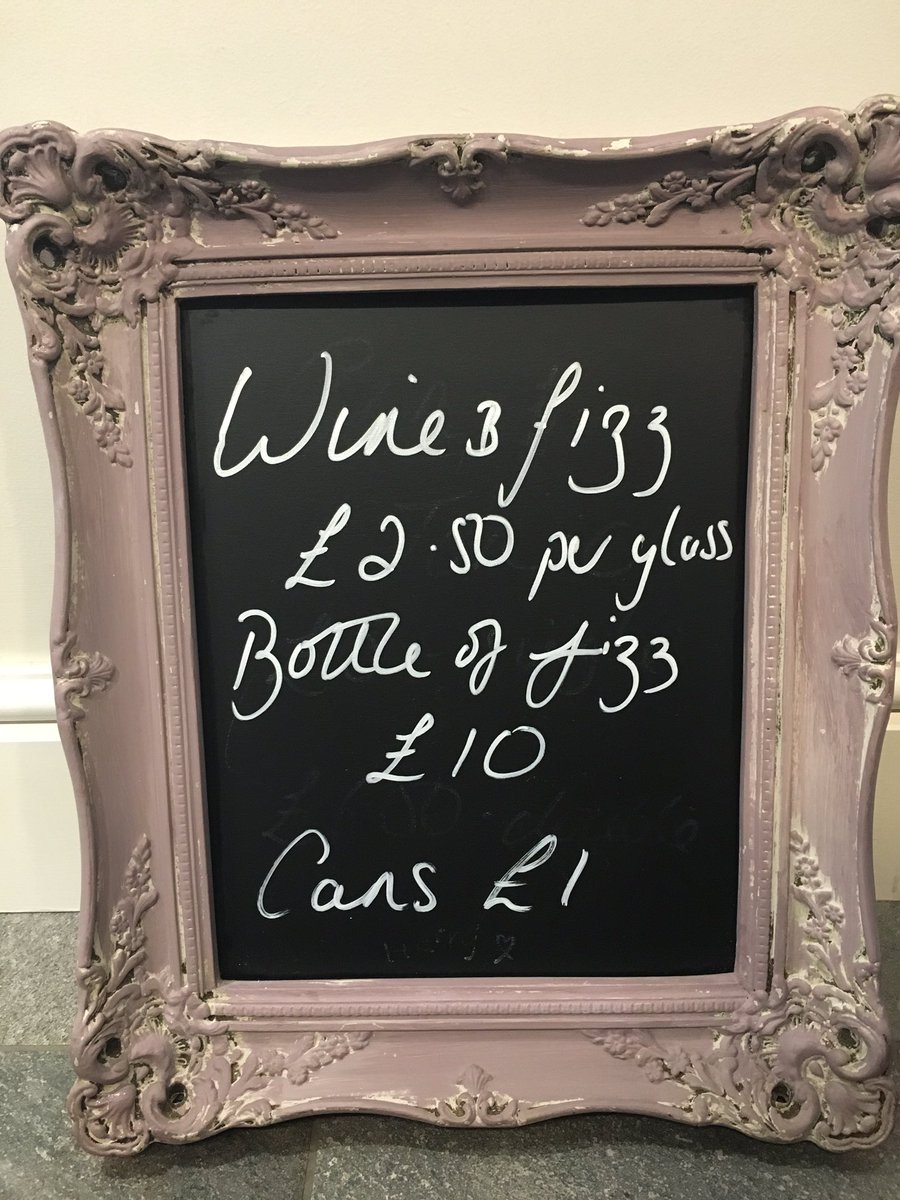 Wine & fizz
£2.50 per glass
Bottle of fizz
£10
Cans £1